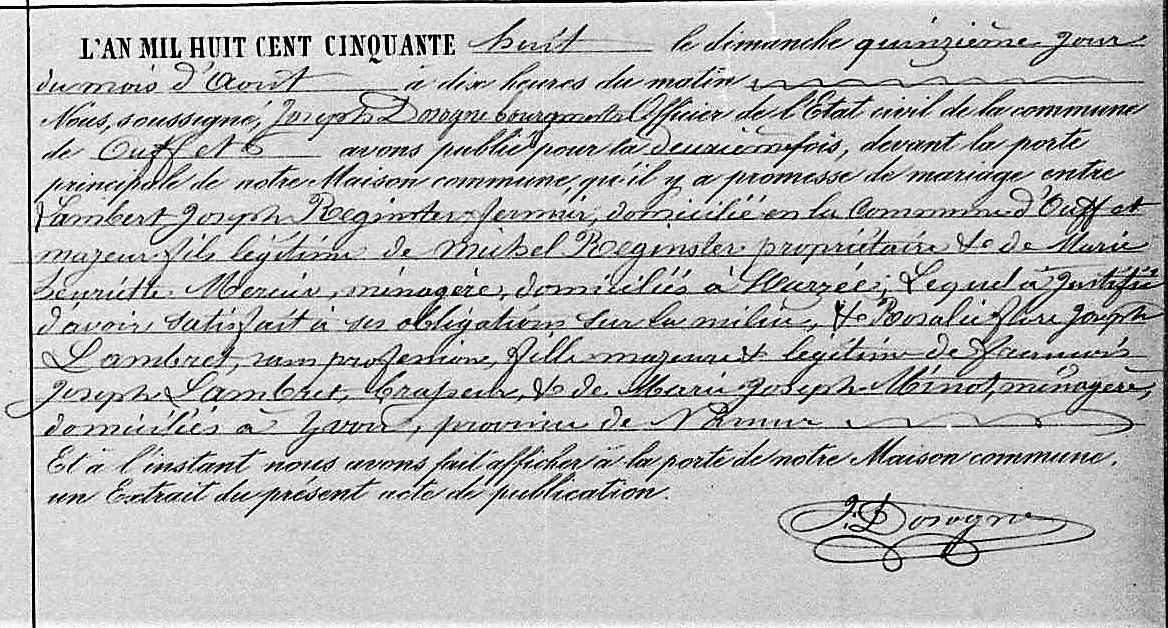 L'AN MIL HUIT CENT CINQUANTE huit le dimanche quinzième jour
du mois d'Aout à dix heures du matin
Nous, soussigné, Joseph Dorogne bourgmestre Officier de l'Etat civil de la commune
de Ouffet avons publié pour la deuxième fois, devant la porte
principale de notre Maison commune, qu'il y a promesse de mariage entre
Lambert Joseph Reginster fermier, domicilié en la Commune d'Ouffet
majeur fils légitime de Michel Reginster propriétaire & de Marie
henriette Mercier, ménagère, domiciliés à Warzée; Lequel à justifié
d'avoir satisfait à ses obligations sur la milice, & Rosalie flore Joseph
Lambret, sans profession, fille majeure & légitime de francois
Joseph Lambret, brasseur, & de Marie Joseph Minot, ménagère,
domiciliés à Yvoir, province de Namur
Et à l'instant nous avons fait afficher à la porte de notre Maison commune.
un Extrait du présent acte de publication.
J. Dorogne